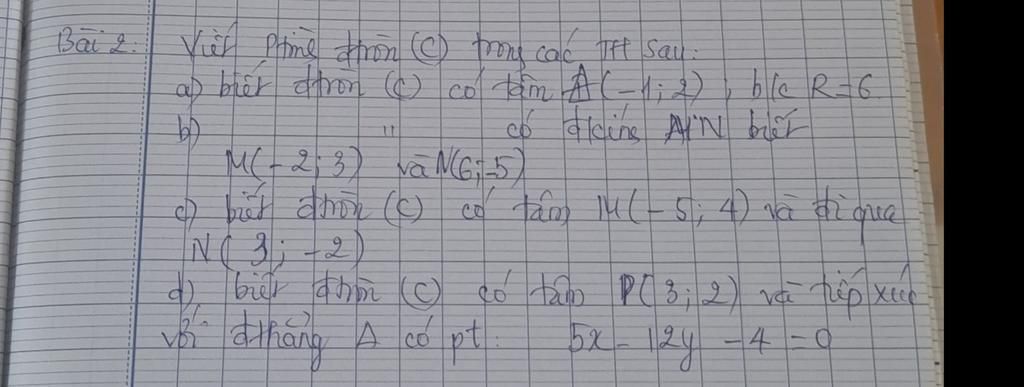 Bài 2: Viết ptrình đtròn (C) trong các TH sau:
a) biết đtròn (C) có tâm A(-1; 2), b/c R=6
b) " có đkính MN biết
M(-2; 3) và N(6; -5)
c) biết đtròn (C) có tâm M(-5; 4) và đi qua
N( 3; -2)
d) biết đtròn (C) có tâm P(3; 2) và tiếp xúc
với đthẳng Δ có pt: 5x - 12y - 4 = 0